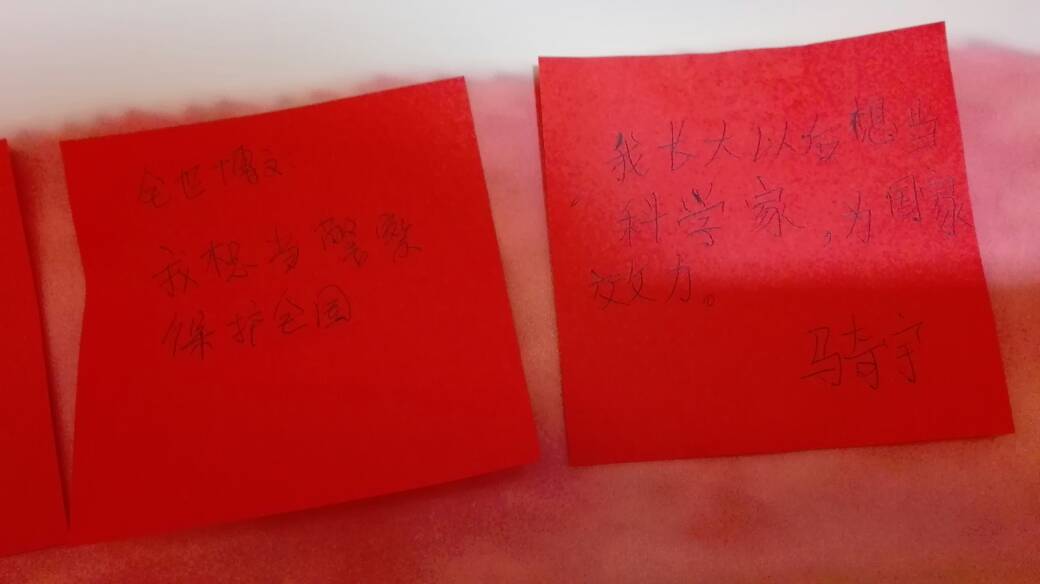 全世博文
我想当警察
保护全国
我长大以后想当
科学家,为国家
效力。
马奇宇